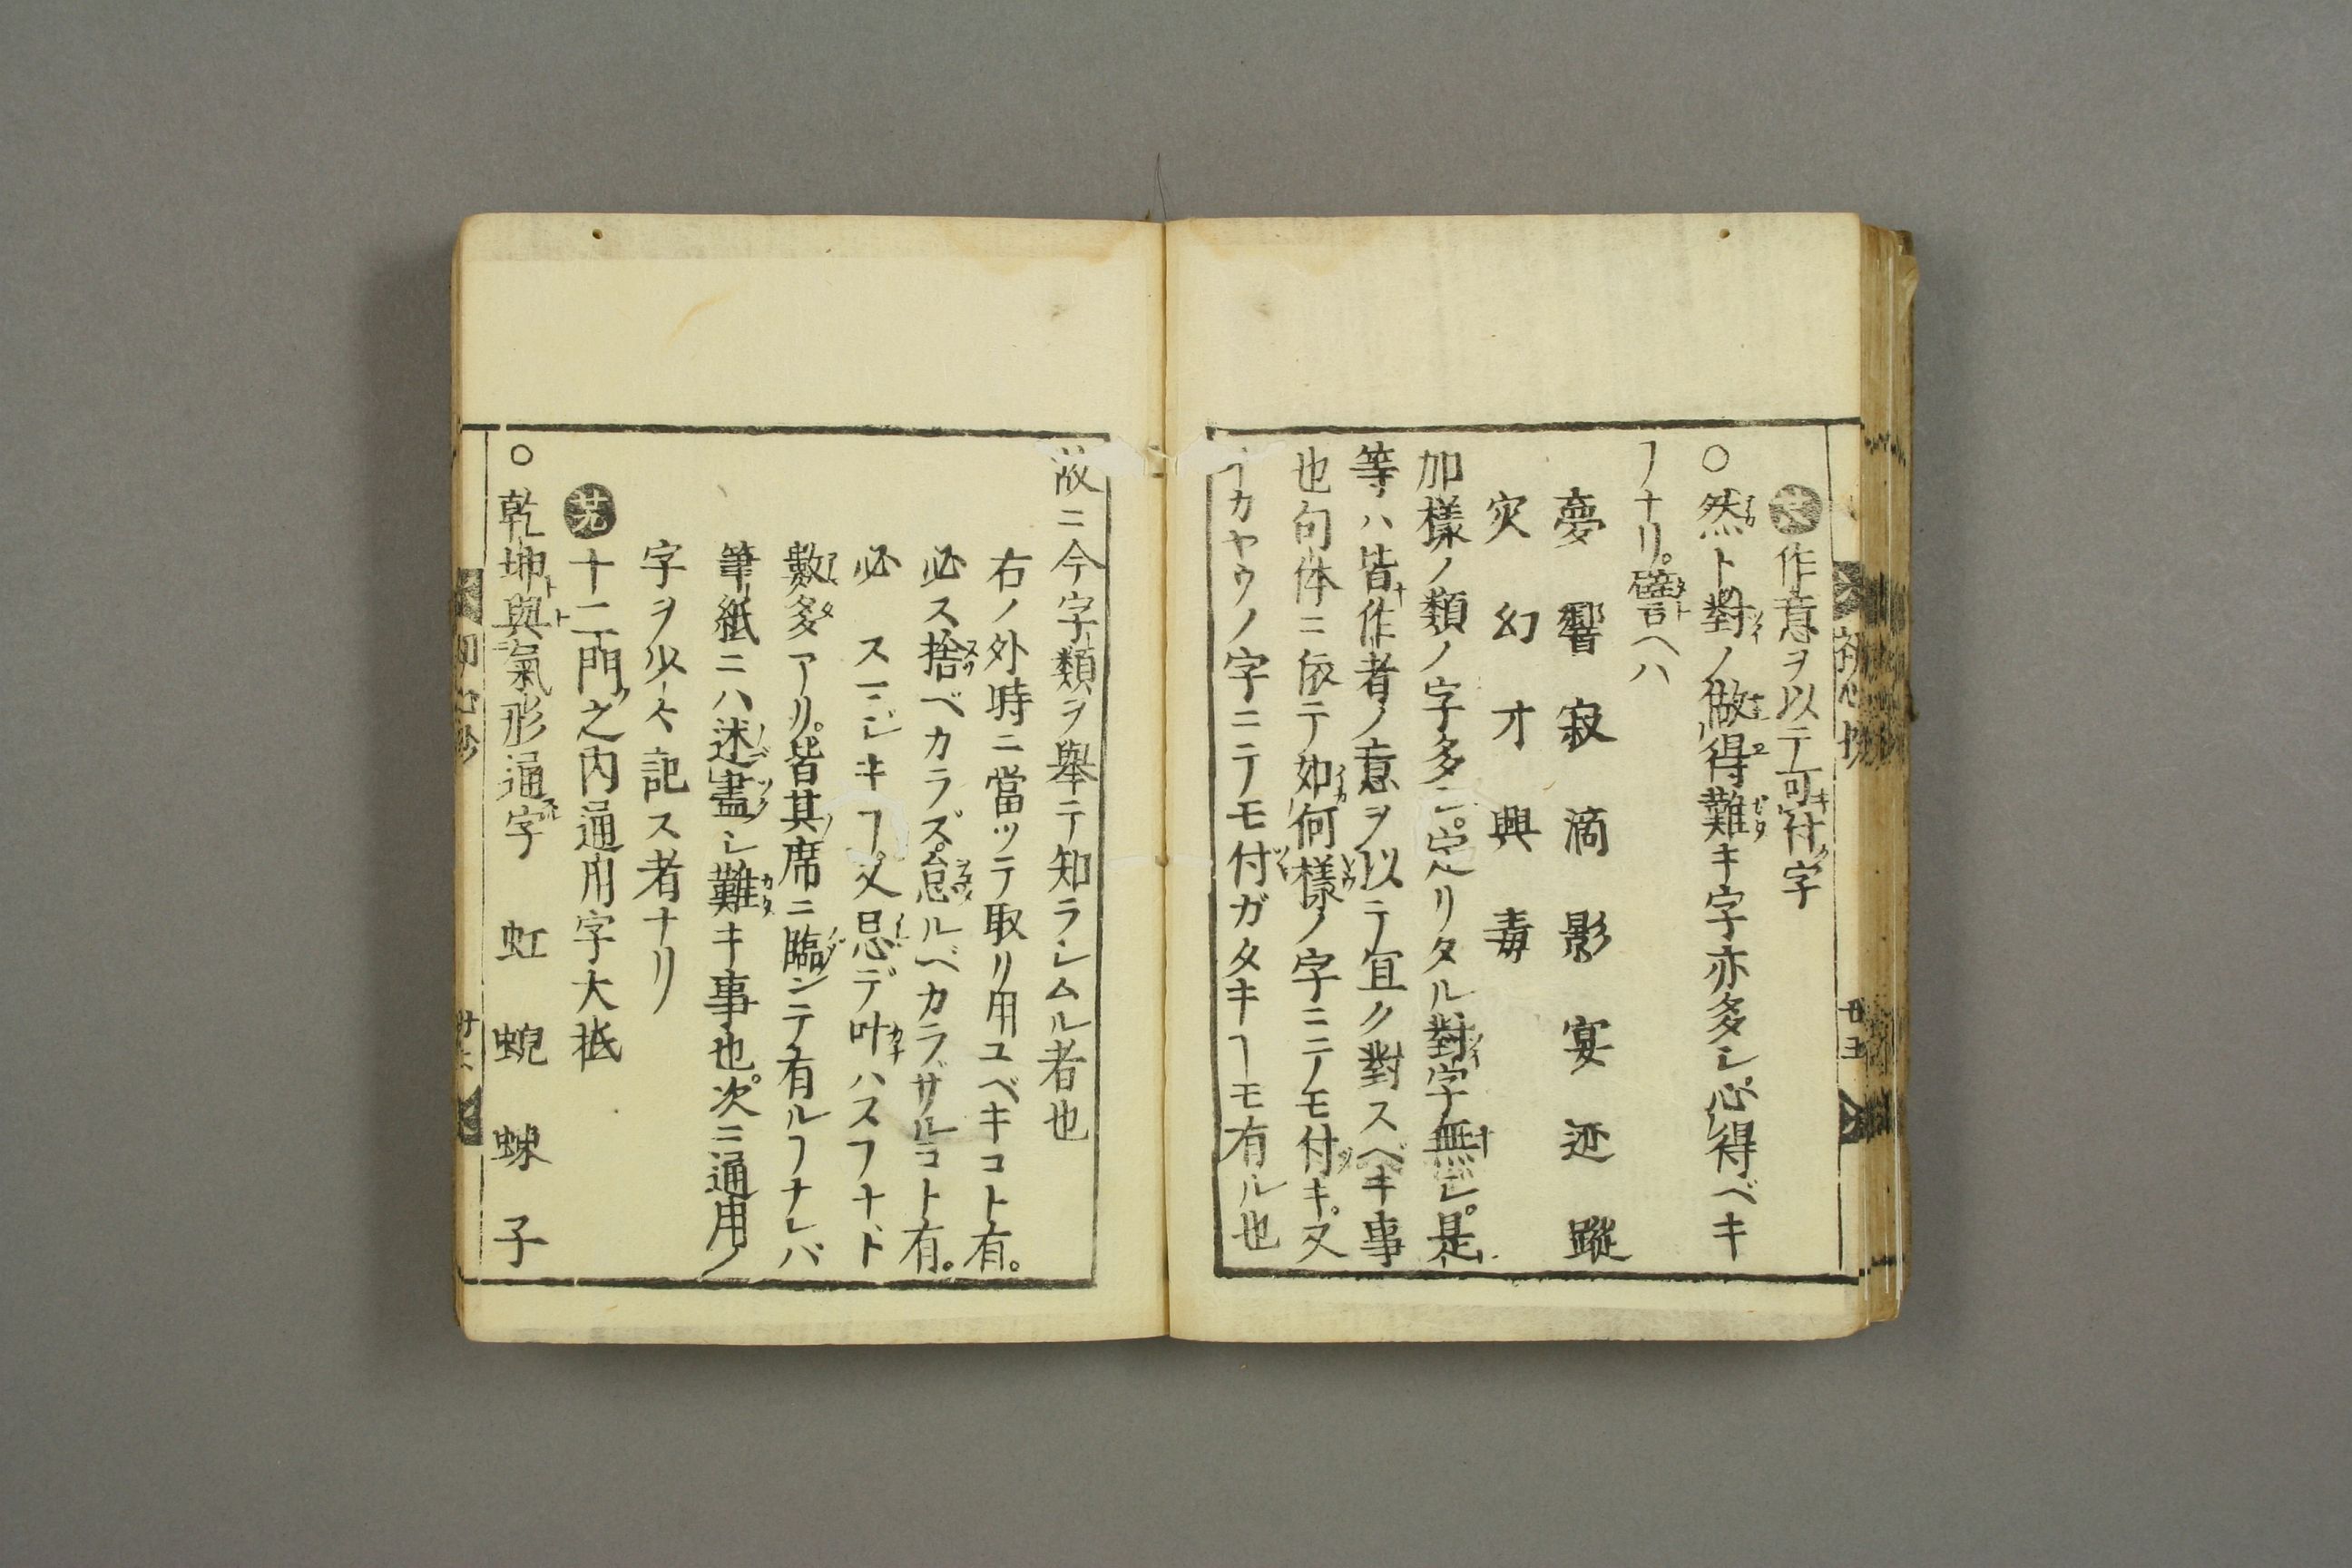 作意ヲ以テ可キ付ク字
○然トモ對ノ做得難キ字亦多シ心得ベキ
ヿナリ。譬ヘハ
夢 響 寂 滴 影 宴 迹 蹤
灾 幻 才 興 毒
加樣ノ類ノ字多シ。定リタル對字無シ。是
等ハ皆作者ノ意ヲ以テ宜ク對スベキ事
也句体ニ依テ如何樣ノ字ニテモ付キ。又
カヤウノ字ニテモ付ガタキヿモ有ル也
故ニ今字類ヲ舉テ知ラシムル者也
右ノ外時ニ當ッテ取リ用ユベキコト有。
必ス捨ベカラズ。怠ルベカラザルコト有。
必スマジキヿ。又忌デ叶ハスヿナト
數多アリ。皆其席ニ臨ンテ有ルヿナレバ
筆紙ニハ述盡シ難キ事也。次ニ通用ノ
字ヲ少々記ス者ナリ
十二門之内通用字大抵
○乾坤與氣形通字 虹 蜺 蝀 子
初心抄 廿五